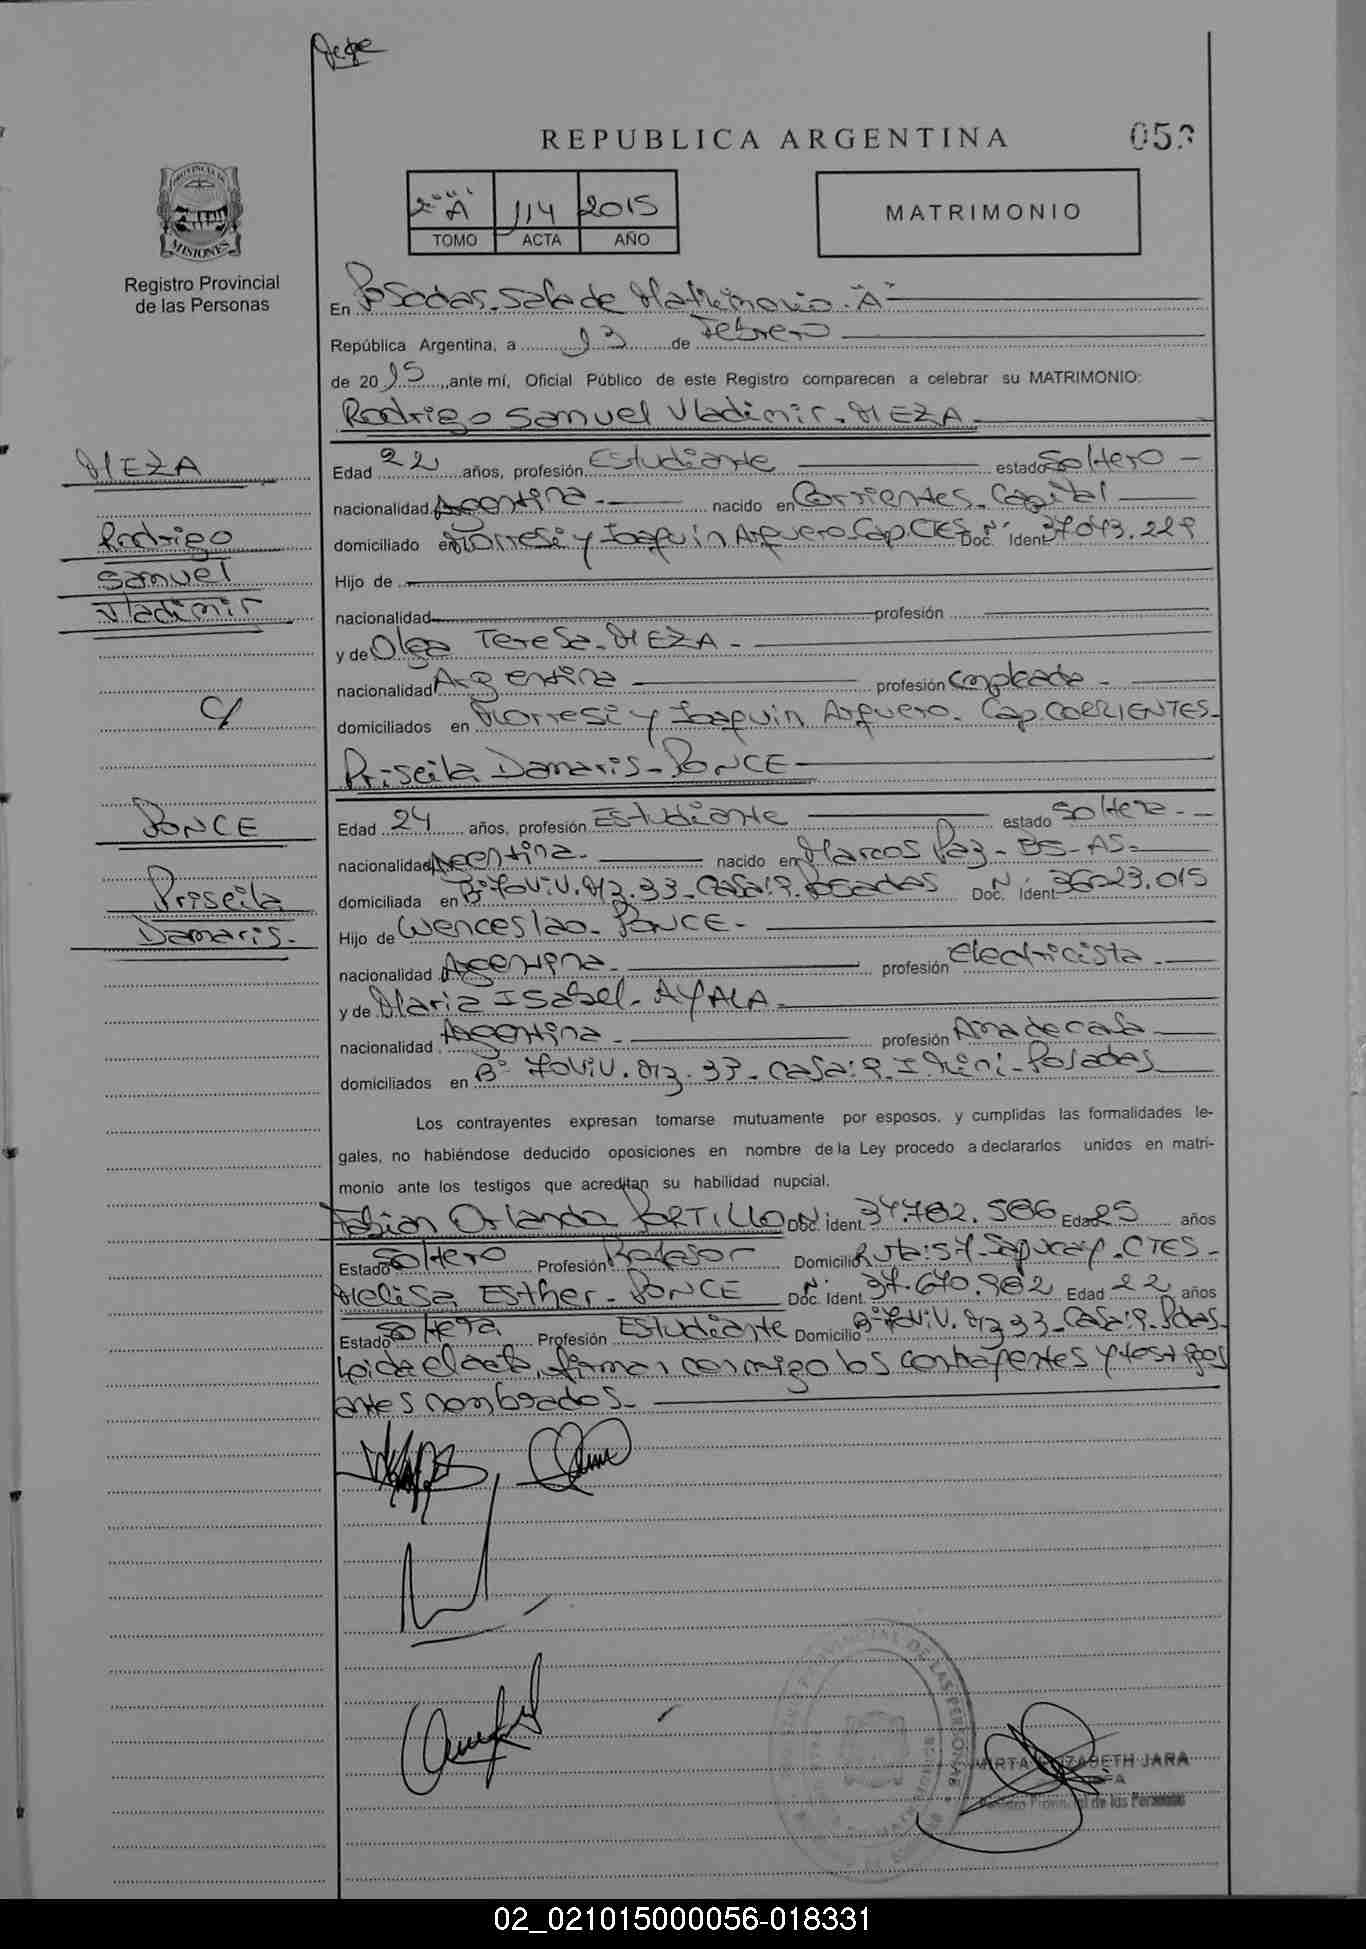 REPUBLICA ARGENTINA
2º "A" 114 2015
TOMO ACTA AÑO
MATRIMONIO
PROVINCIA DE
MISIONES
Registro Provincial
de las Personas
En Posadas. Sala de Matrimonio "A"
República Argentina, a 13 de Febrero
de 2015, ante mí, Oficial Público de este Registro comparecen a celebrar su MATRIMONIO:
Rodrigo Samuel Vladimir. MEZA
MEZA
Rodrigo
Samuel
Vladimir
C/
PONCE
Priscila
Damaris.
Edad 22 años, profesión Estudiante estado Soltero
nacionalidad Argentina nacido en Corrientes. Capital
domiciliado en y Joaquin Cap. CTES Doc. Nº Ident. 37.043.229
Hijo de
nacionalidad profesión
y de Olga Teresa. MEZA
nacionalidad Argentina profesión empleada
domiciliados en y Joaquin Cap. CORRIENTES
Priscila Damaris. PONCE
Edad 24 años, profesión Estudiante estado Soltera
nacionalidad Argentina. nacido en Marcos Paz. BS. AS.
domiciliada en Bº 70 Viv. Mz. 33. Casa: 9. Posadas Doc. Nº Ident.
Hijo de Wenceslao. PONCE
nacionalidad Argentina. profesión electricista
y de Maria Isabel. AYALA
nacionalidad Argentina profesión Ama de casa
domiciliados en Bº 70 Viv. Mz. 33. Casa: 9. Posadas
Los contrayentes expresan tomarse mutuamente por esposos, y cumplidas las formalidades le-
gales, no habiéndose deducido oposiciones en nombre de la Ley procedo a declararlos unidos en matri-
monio ante los testigos que acreditan su habilidad nupcial.
Fabian Orlando PORTILLO Doc. Nº Ident. 34.782.586 Edad 25 años
Estado Soltero Profesión Profesor Domicilio Sapucay. CTES
Melisa Esther. PONCE Doc. Nº Ident. 37.670.982 Edad 22 años
Estado Soltera Profesión Estudiante Domicilio Bº 70 Viv. Mz 33. Casa: 9. Pdas.
Leida el acta, firman conmigo los contrayentes y testigos
antes nombrados.
MIRTA ELIZABETH JARA
JEFA
Registro Provincial de las Personas
02_021015000056-018331